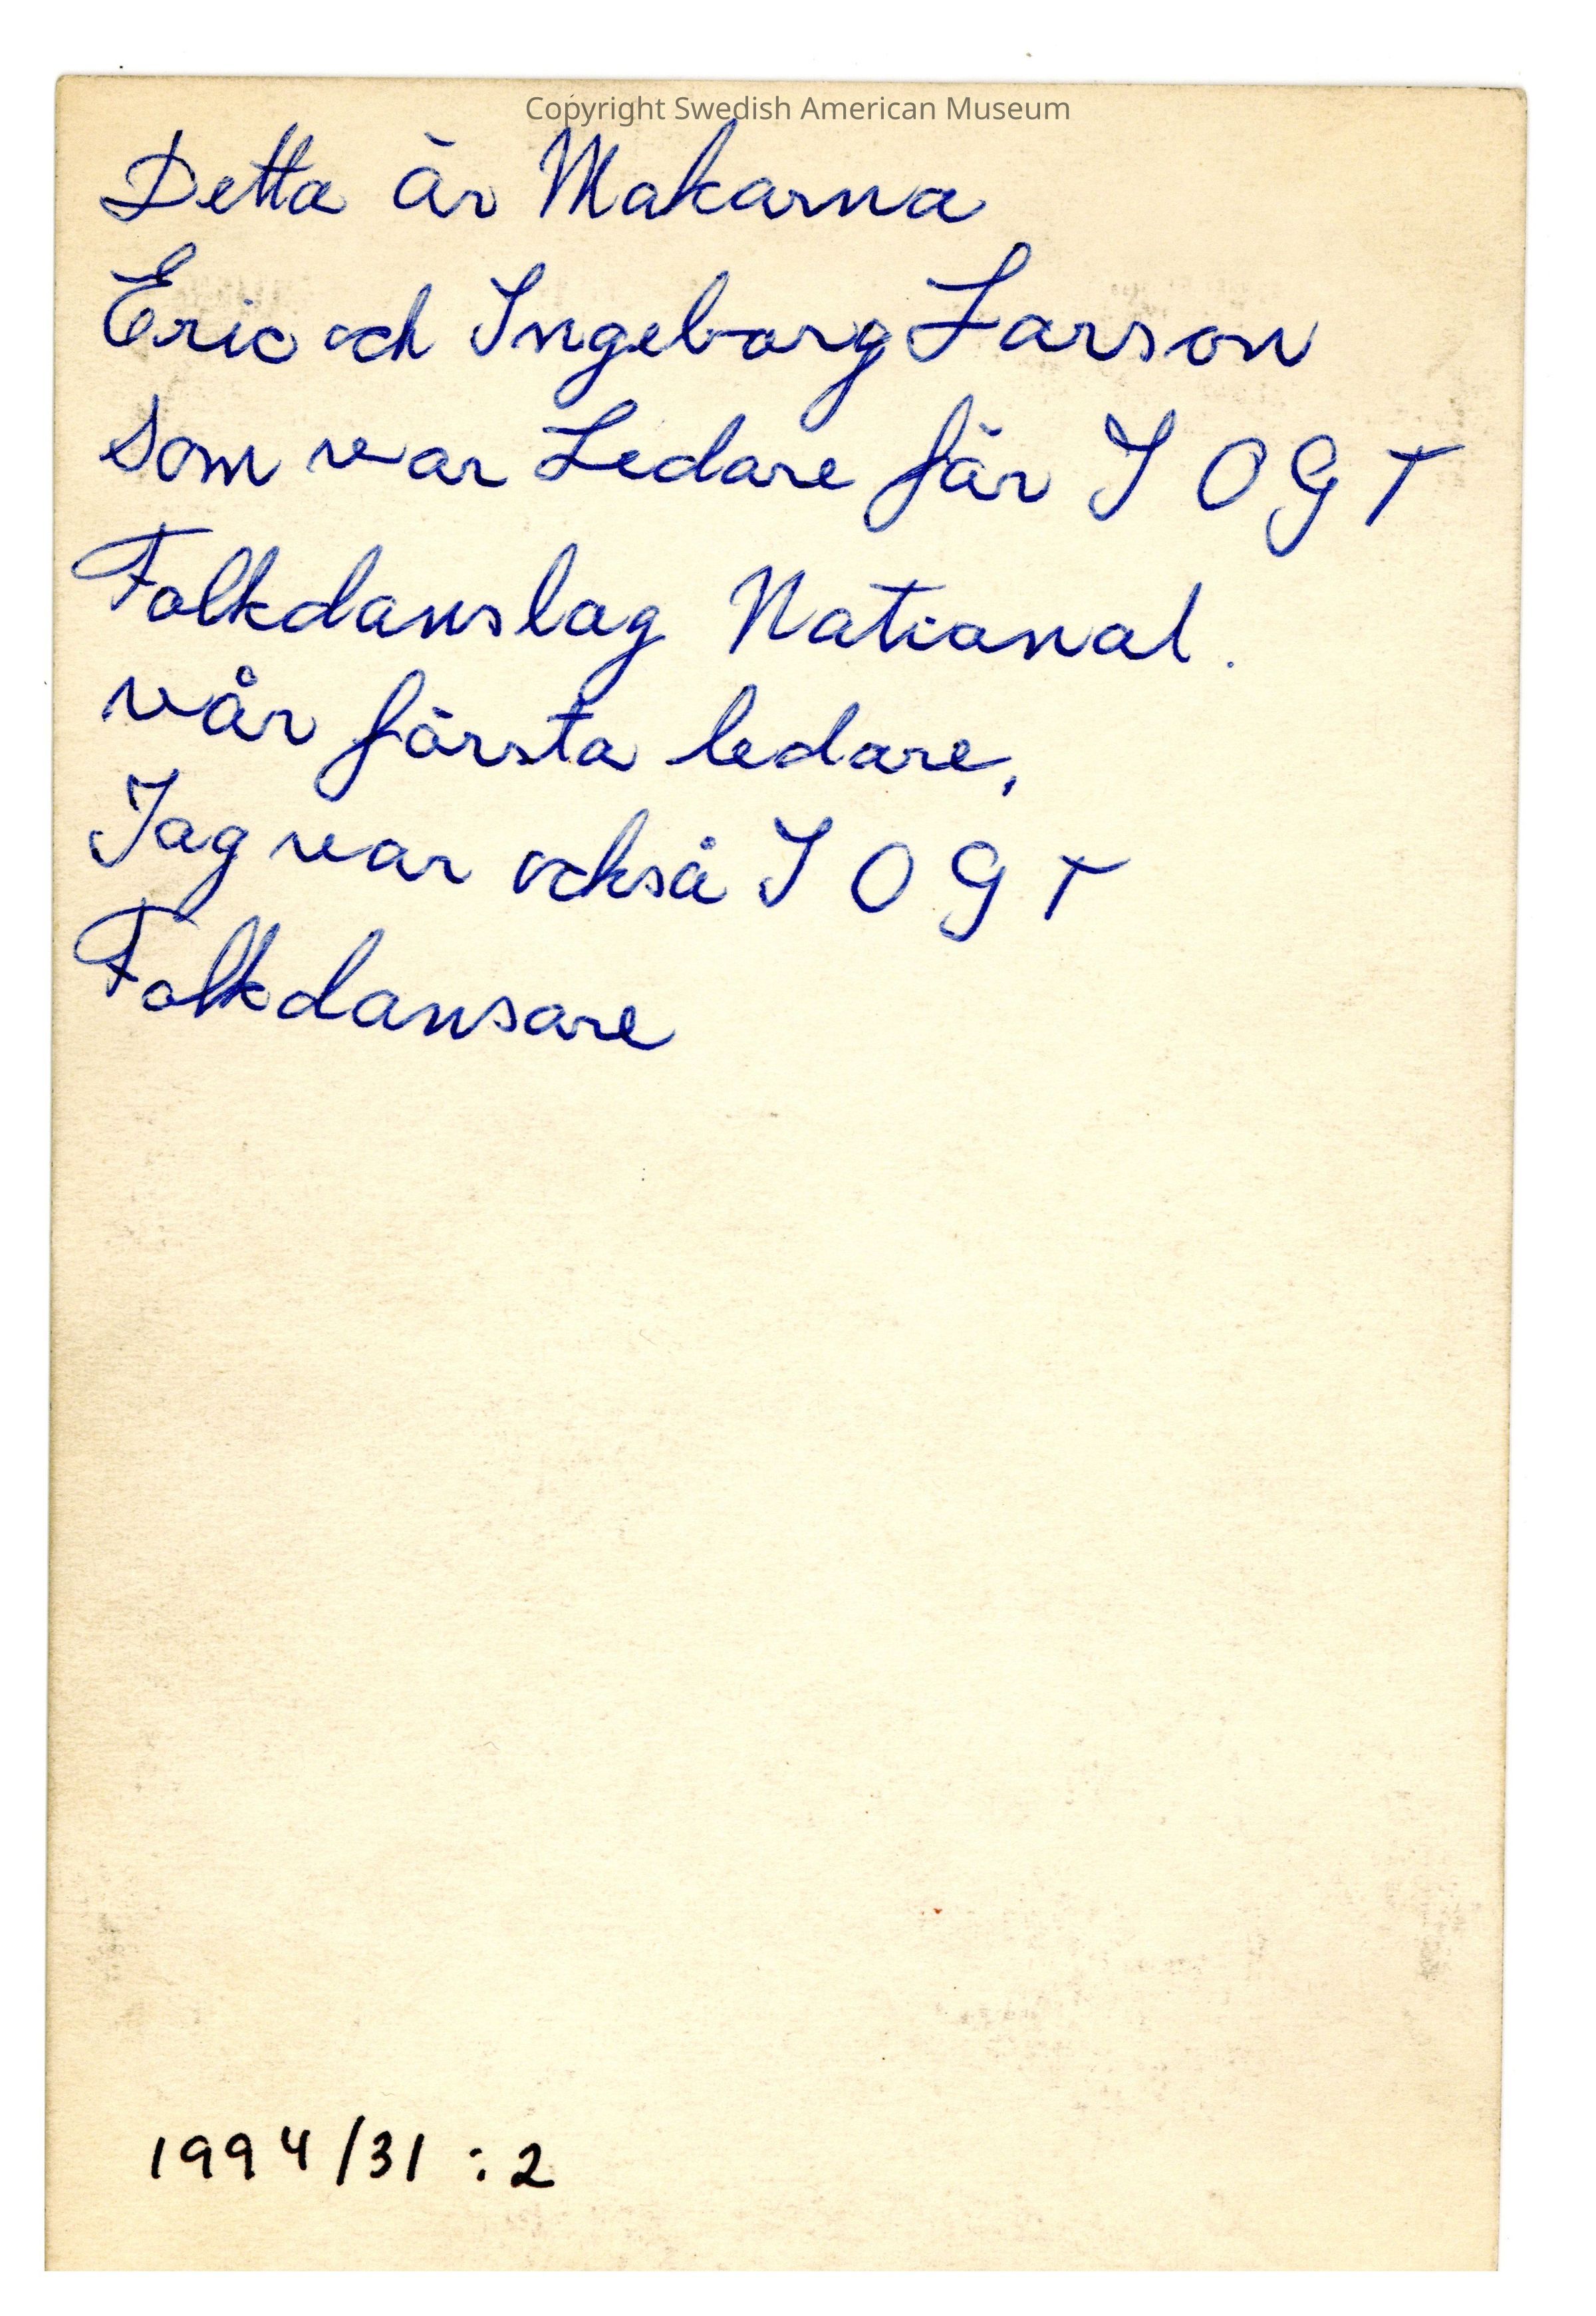 Copyright Swedish American Museum
Detta är Makarna
Eric och Ingeborg Larson
som var Ledare för I O G T
Folkdanslag National.
vår första ledare,
Jag var också I O G T
Folkdansare
1994/31:2